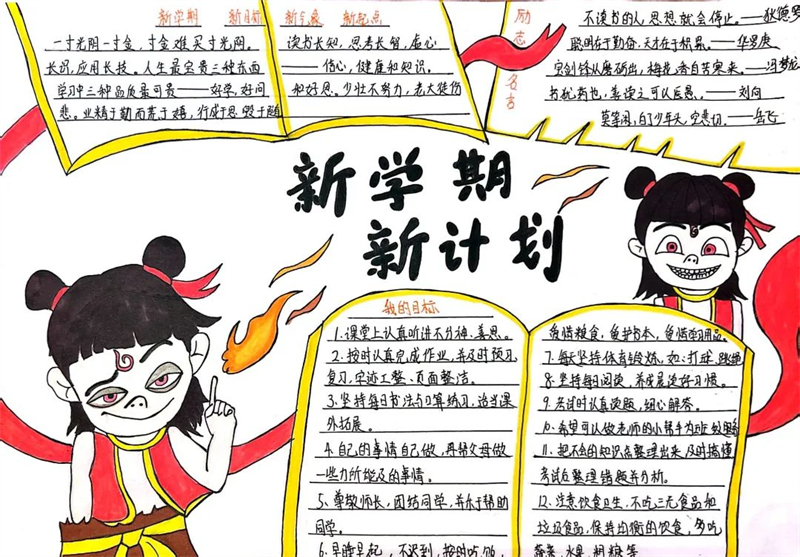 新学期 新目标 新气象 新起点
一寸光阴一寸金，寸金难买寸光阴。
长识，应用长技。人生最宝贵三种东西
学习中三种品质最可贵——好学、好问
悲。业精于勤而荒于嬉，行成于思毁于随
读书长知，思考长智，虚心
——信心，健康和知识。
和好思。少壮不努力，老大徒伤
励志名言
不读书的人，思想就会停止。——狄德罗
聪明在于勤奋，天才在于积累。——华罗庚
宝剑锋从磨砺出，梅花香自苦寒来。——冯梦龙
书犹药也，善读之可以医愚。——刘向
莫等闲，白了少年头，空悲切。——岳飞
新学期
新计划
我的目标
1、课堂上认真听讲不分神、善思。
2、按时认真完成作业，并及时预习
复习，字迹工整、页面整洁。
3、坚持每日书法与口算练习，适当课
外拓展。
4、自己的事情自己做，再帮父母做
一些力所能及的事情。
5、尊敬师长，团结同学，并乐于帮助
同学。
6、早睡早起，不迟到，按时吃饭，
爱惜粮食，爱护书本，爱惜学习用品。
7、每天坚持体育锻炼，如：打球、跳绳
8、坚持每日阅读，养成良好习惯。
9、考试时认真读题，细心解答。
10、希望可以做老师的小帮手为班级服务
11、把不会的知识点整理出来，及时搞懂
考试后整理错题并分析。
12、注意饮食卫生，不吃三无食品和
垃圾食品，保持均衡的饮食，多吃
蔬菜、水果、粗粮等